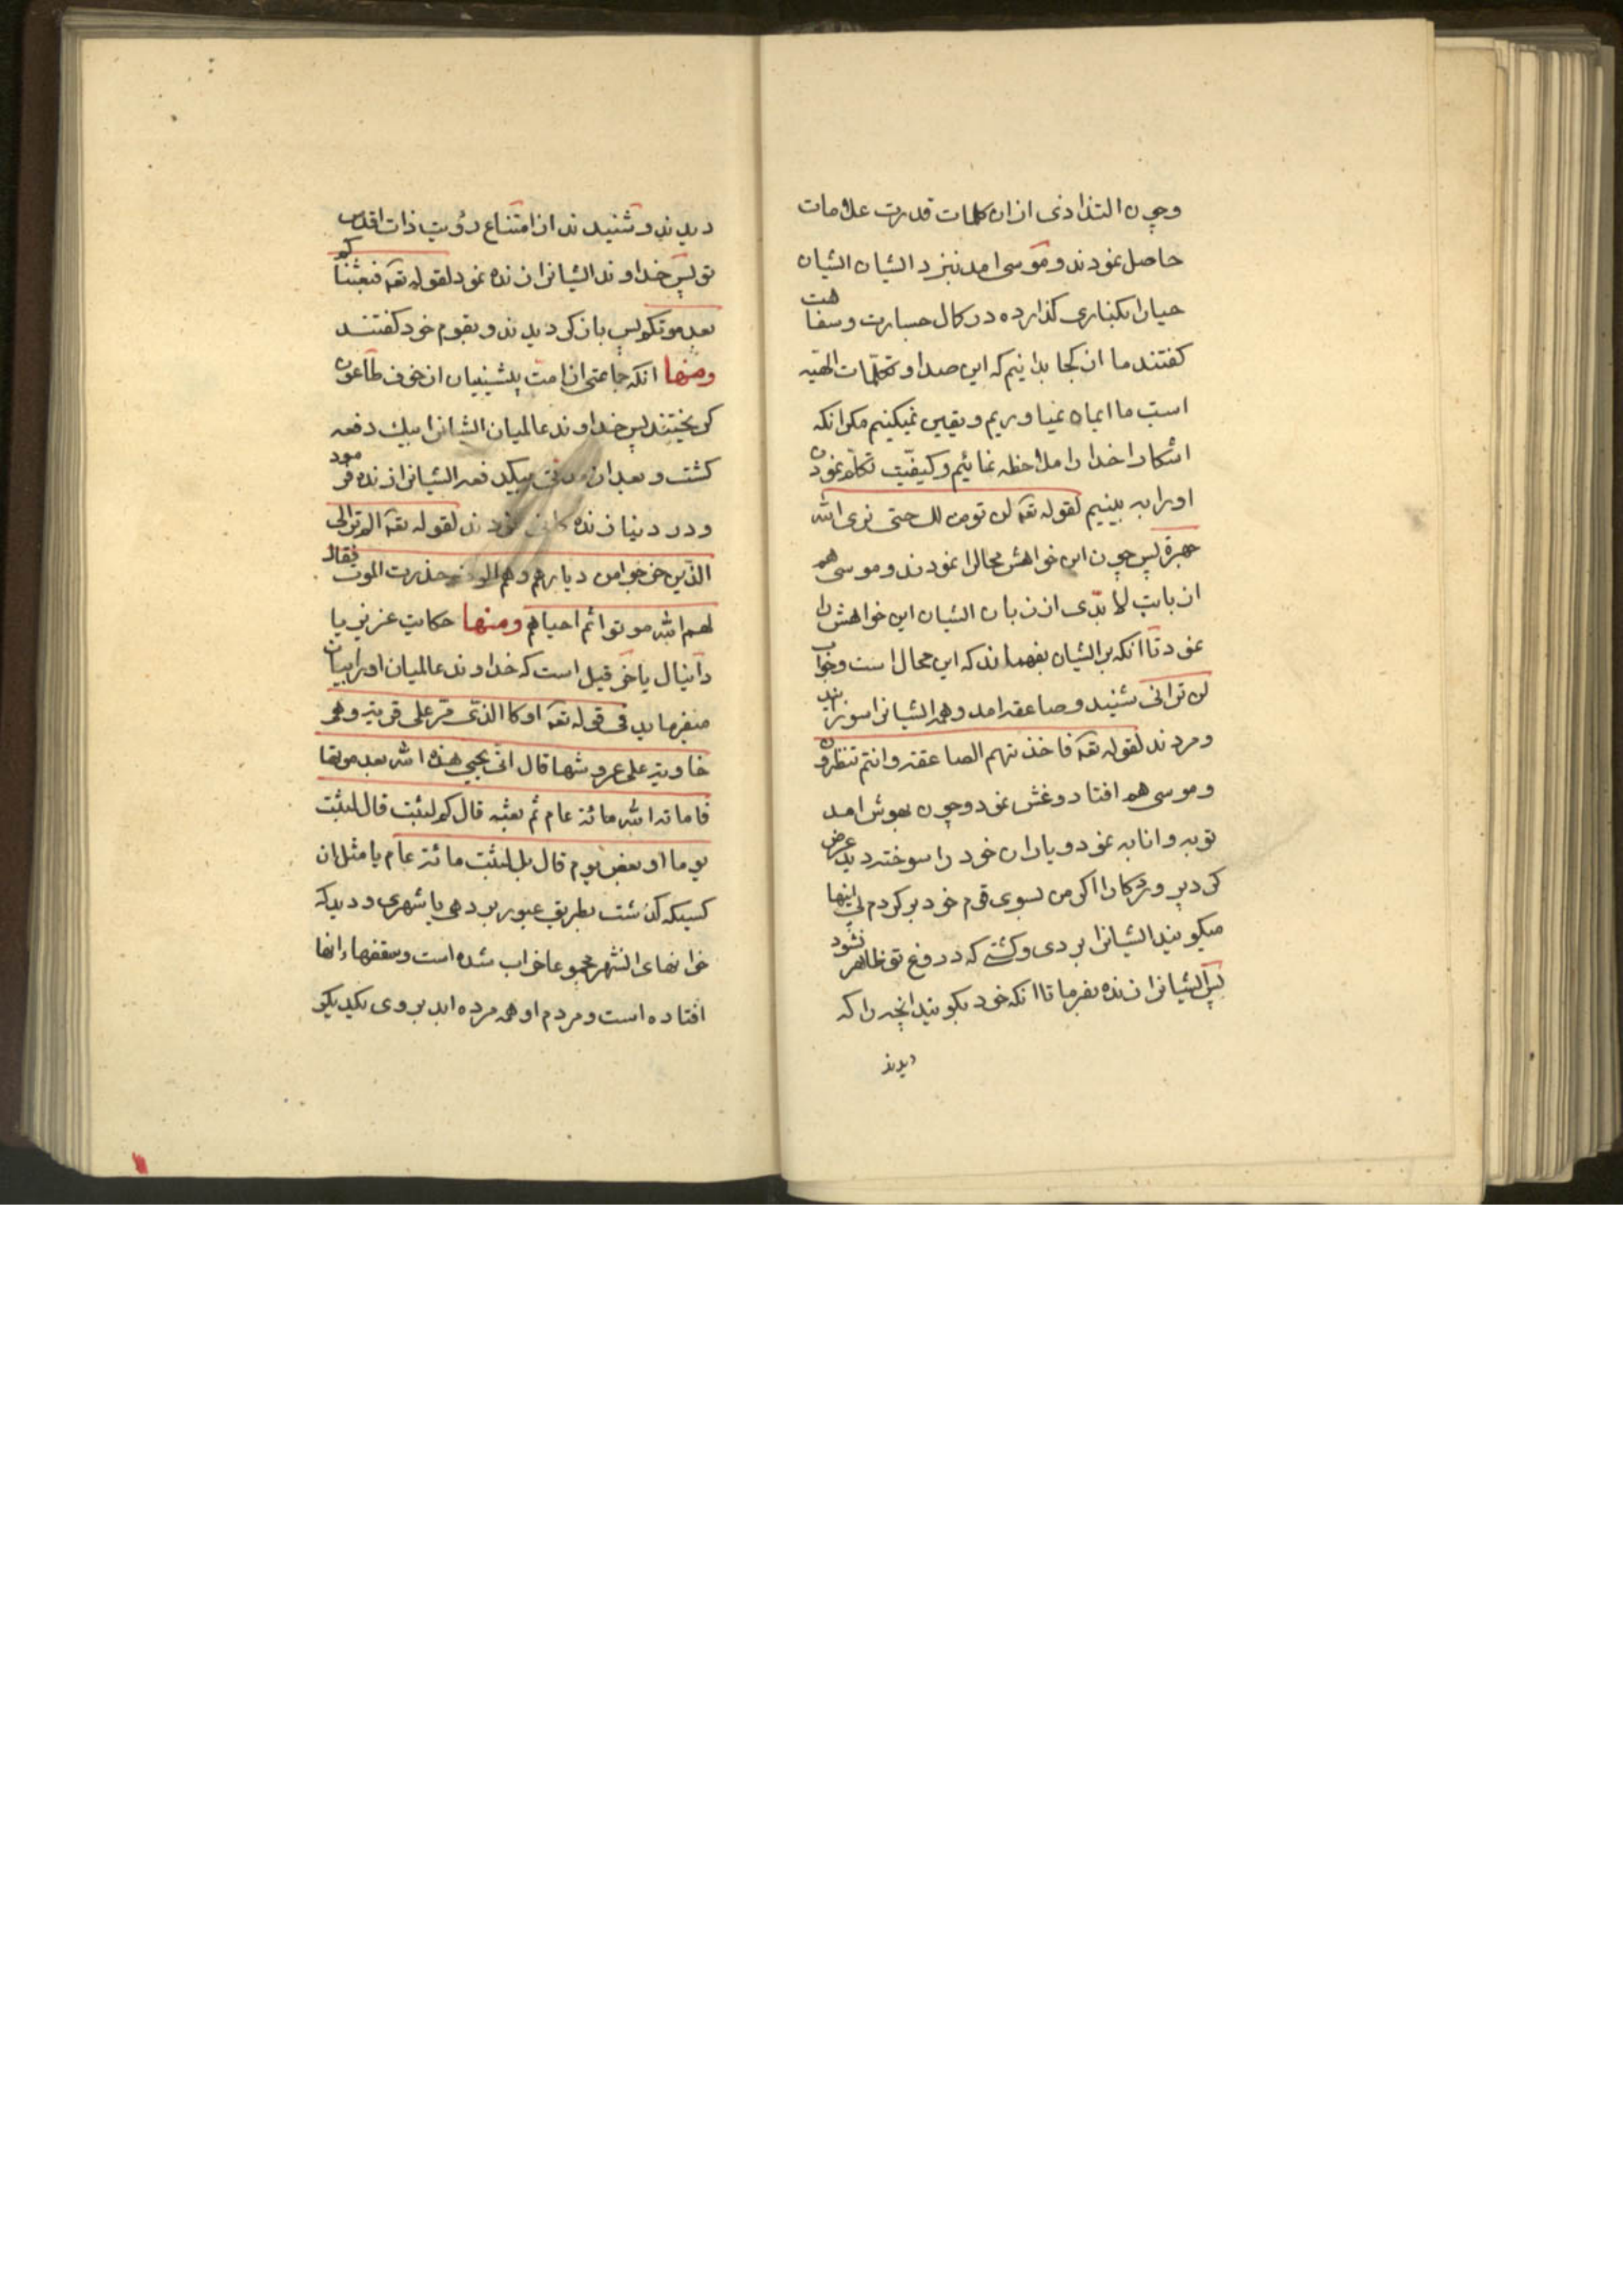 وچون التذاذی ازان کلمات قدرت علامات
حاصل نمودند و موسی امد بنزد ایشان ایشان
حیارا بکناری کذارده در کمال جسارت و سفاهت
کفتند ما از کجا بدانیم که این صدا و تکلمات الهیّه
است ما ایمان نمیاوریم و یقین نمیکنیم مکر انکه
اشکارا خدا را ملاحظه نمائیم و کیفیّت تکلم نمودن
اورا به بینیم لقوله تعه لن نومن لک حتی نری الله
جهرة پس چون این خواهش محالرا نمودند و موسی هم
از بابت لا بدّی از زبان ایشان این خواهش را
نمود تا انکه بر ایشان بفهماند که این محال است و جواب
لن ترانی شنید و صاعقه امد و همه ایشانرا سوزانید
ومردند لقوله تعه فاخذتهم الصاعقة وانتم تنظرون
و موسی هم افتاد و غش نمود و چون بهوش امد
توبه و انابه نمود و یاران خود را سوخته دید عرض
کرد پروردکارا اکر من بسوی قوم خود بر کردم اینها
میکویند ایشانرا بردی و کشتی که دروغ تو ظاهر نشود
پس ایشانرا زنده بفرما تا انکه خود بکویند انچه را که
دیدند
دیدند و شنیدند از امتناع رؤیت ذات اقدس
تو پس خداوند ایشانرا زنده نمود لقوله تعه فبعثناکم
بعد موتکم پس باز کردیدند و بقوم خود کفتند
ومنها انکه جماعتی از امت پیشینیان از خوف طاعون
کریختند پس خداوند عالمیان ایشانرا بیک دفعه
کشت و بعد از مدتی بیکدفعه ایشانرا زنده فرمود
و در دنیا زنده کانی نمودند لقوله تعه الم تر الی
الذین خرجوا من دیارهم وهم الوف حذرت الموت فقال
لهم الله موتوا ثم احیاهم ومنها حکایت عزیر یا
دانیال یا خرقیل است که خداوند عالمیان اورا بیان
میفرماید فی قوله تعه او کالذی مرّ علی قریة وهی
خاویة علی عروشها قال انی یحیی هذه الله بعد موتها
فاماته الله مائة عام ثم بعثه قال کم لبثت قال لبثت
یوما او بعض یوم قال بل لبثت مائة عام یا مثل ان
کسیکه کذشت بطریق عبور بر دهی یا شهری و دید که
خانهای انشهر مجموعا خراب شده است و سقفها رانها
افتاده است و مردم او همه مرده اند بروی یکدیکر